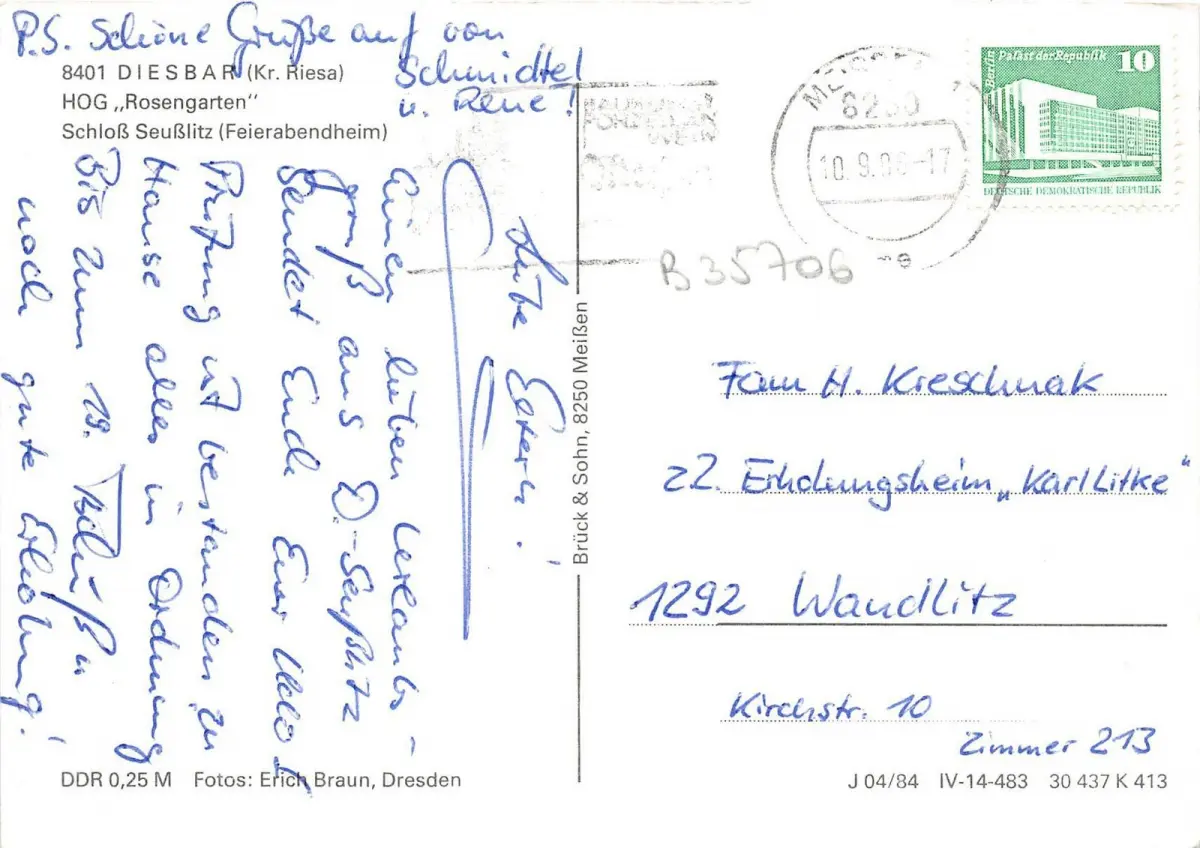 P.S. Schöne Grüße auf von
Schmidtel
u. Rene!
8401 DIESBAR (Kr. Riesa)
HOG „Rosengarten"
Schloß Seußlitz (Feierabendheim)
Liebe Eltern!
Einen lieben Urlaubs-
gruß aus D.-Seußlitz
sendet Euch Euer
Prüfung ist bestanden zu
Hause alles in Ordnung
Bis zum 19. Tschüß u
noch gute Erholung!
DDR 0,25 M Fotos: Erich Braun, Dresden
Brück & Sohn, 8250 Meißen
PORZELLAN
WEIN
10.9.86-17
Berlin Palast der Republik 10
DEUTSCHE DEMOKRATISCHE REPUBLIK
B35706
Fam H. Kreschnak
zZ. Erholungsheim „Karl Litke"
1292 Wandlitz
Kirchstr. 10
Zimmer 213
J 04/84 IV-14-483 30 437 K 413